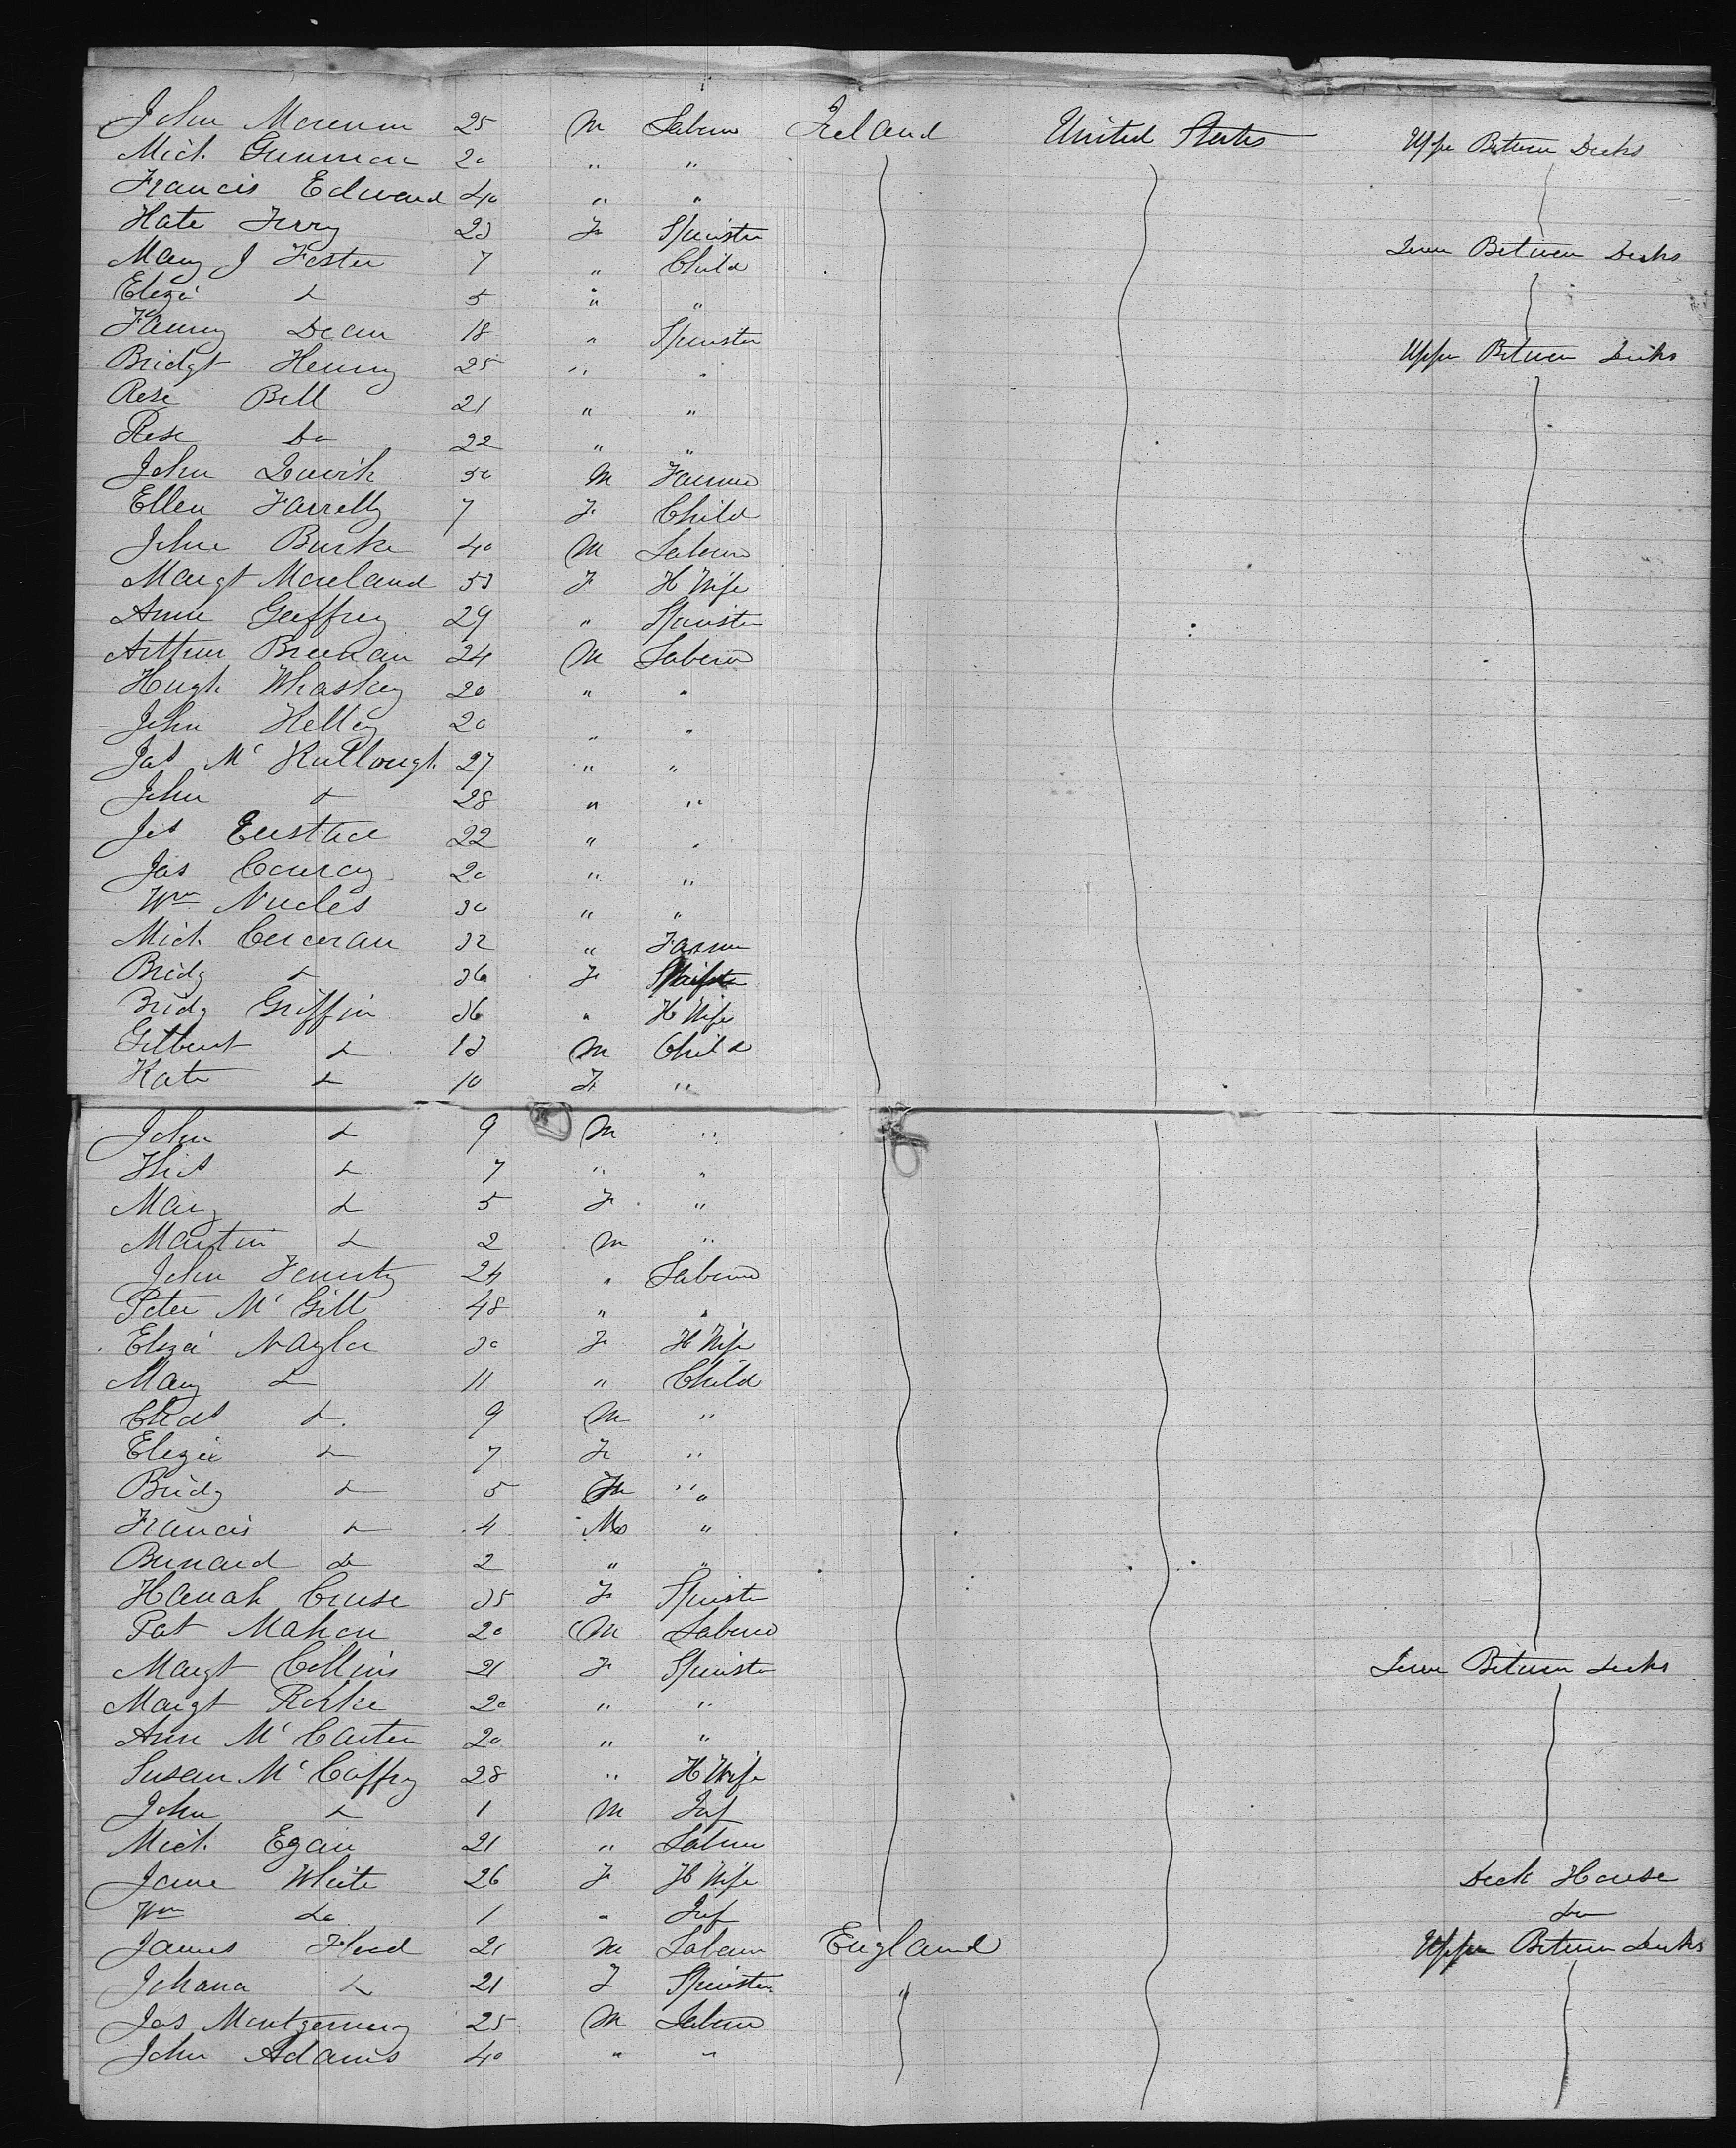 John 25 M Labour Ireland United States Upper Between Decks
Mich. 20 " "
Francis Edward 40 " "
Kate 23 F Spinster
Mary J Foster 7 " Child Lower Between Decks
Eliza Do 5 " "
Fanny Dean 18 " Spinster
Bridgt Henry 25 " " Upper Between Decks
Rose Bell 21 " "
Rose Do 22 " "
John 50 M Farmer
Ellen Farrelly 7 F Child
John Burke 40 M Labour
Margt Moreland 53 F H Wife
Anne Geffrey 29 " Spinster
Arthur 24 M Labour
Hugh Whaskey 20 " "
John Kelley 20 " "
Jas Mc Kullough 27 " "
John Do 28 " "
Jas Eustace 22 " "
Jas Conroy 20 " "
Wm 30 " "
Mich. Corcoran 32 " Farmer
Bridg Do 36 F
Bridg Griffin 36 " H Wife
Gilbert Do 13 M Child
Kate Do 10 F "
John Do 9 M "
Do 7 " "
Mary Do 5 F "
Martin Do 2 M "
John 24 " Labour
Peter Mc Gill 48 " "
Eliza Naylor 30 F H Wife
Mary Do 11 " Child
Chas Do 9 M "
Eliza Do 7 F "
Bridg Do 5 F "
Francis Do 4 M "
Bernard Do 2 " "
Hanah Cruse 35 F Spinster
Pat Mahon 20 M Labour
Margt Collins 21 F Spinster Lower Between Decks
Margt Rorke 20 " "
Ann Mc Carten 20 " "
Susan Mc Caffry 28 " H Wife
John Do 1 M Inf
Mich. Egan 21 " Labour
Jane White 26 F H Wife Deck House
Wm Do 1 " Inf Do
James Flood 21 M Labour England Upper Between Decks
Johana Do 21 F Spinster "
Jas Montgomery 25 M Labour
John Adams 40 " "